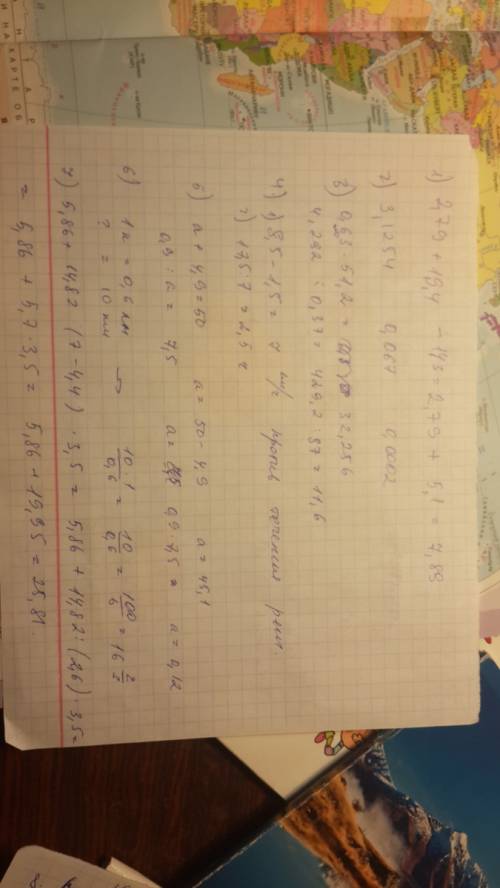 1) 2,79 + 19,4 - 14,3 = 2,79 + 5,1 = 7,89
2) 3,1254 0,067 0,0002
3) 0,63 · 51,2 = 32,256
4,292 : 0,37 = 429,2 : 37 = 11,6
4) 1) 8,5 - 1,5 = 7 км/ч против течения реки.
2) 17,5 : 7 = 2,5 ч
5) a + 4,9 = 50 a = 50 - 4,9 a = 45,1
0,9 : a = 7,5 a = 0,9 : 7,5 = a = 0,12
6) = 0,6 км
? = 10 км 10·1/0,6 = 10/0,6 = 100/6 = 16 2/
7) 5,86 + 14,82 : (7 - 4,4) · 3,5 = 5,86 + 14,82 : (2,6) · 3,5 =
= 5,86 + 5,7 · 3,5 = 5,86 + 19,95 = 25,81.
КАРТЕ ОБ